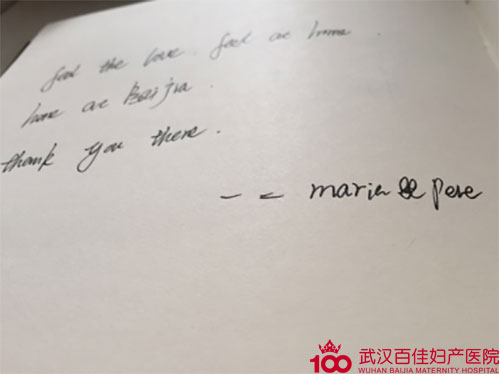 feel the love. feel at home
home at Baijia.
thank you there.
-- maria & Pete
100 武汉百佳妇产医院
WUHAN BAIJIA MATERNITY HOSPITAL